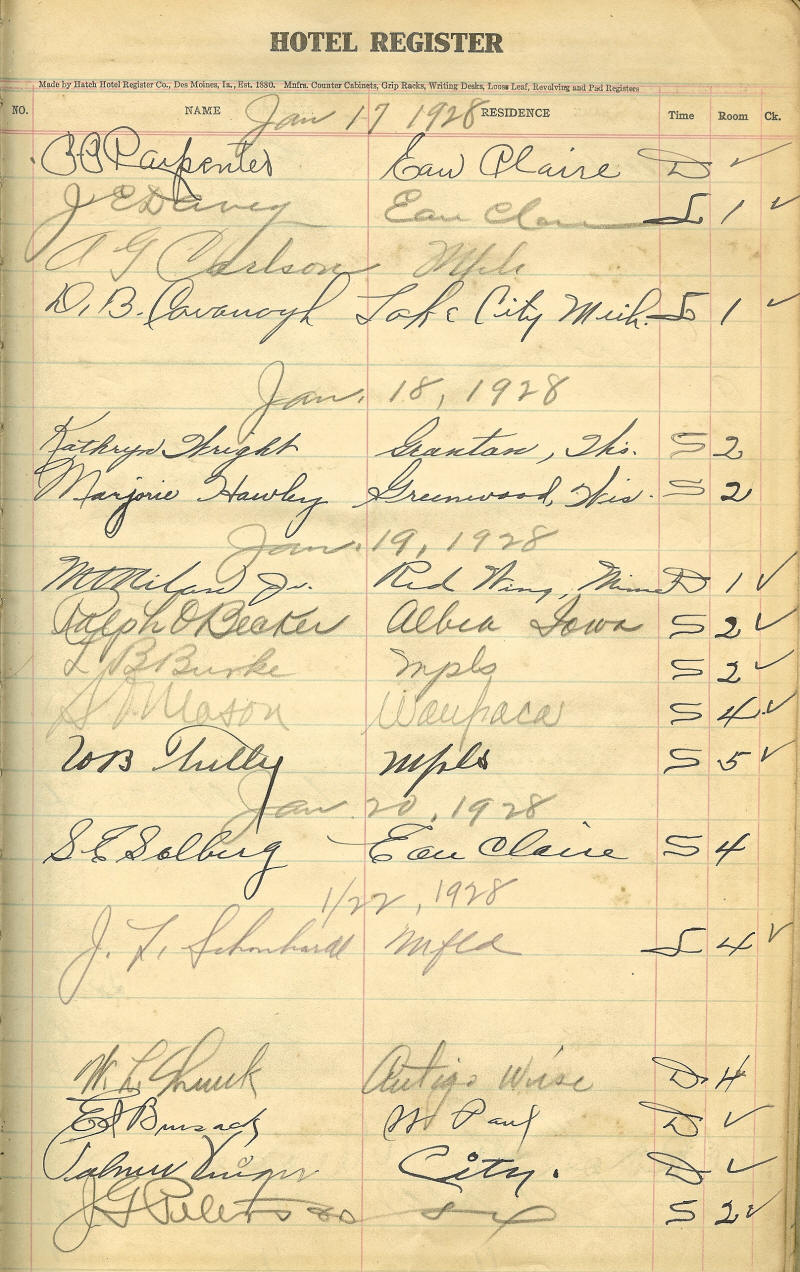 HOTEL REGISTER
Made by Hatch Hotel Register Co., Des Moines, Ia., Est. 1880. Mnfrs. Counter Cabinets, Grip Racks, Writing Desks, Loose Leaf, Revolving and Pad Registers
NO. NAME RESIDENCE Time Room Ck.
Jan 17 1928
Carpenter Eau Claire D ✓
J E Davey Eau Claire S 1 ✓
A G Carlson Mpls
D. B. Cavanogh Lake City Mich. S 1 ✓
Jan. 18, 1928
Kathryn Wright Granton, Wis. S 2
Marjorie Hawley Greenwood, Wis. S 2
Jan. 19, 1928
Jr. Red Wing, Minn D 1 ✓
Ralph O Becker Albia Iowa S 2 ✓
L B Burke Mpls S 2 ✓
Mason Waupaca S 4 ✓
WB Tully Mpls S 5 ✓
Jan 20, 1928
S E Solberg Eau Claire S 4
1/22, 1928
J. L. Schonhardt Mfld S 4 ✓
W. L. Antigo Wisc D 4
Ed St Paul D ✓
City. D ✓
J G Peterson S 2 ✓